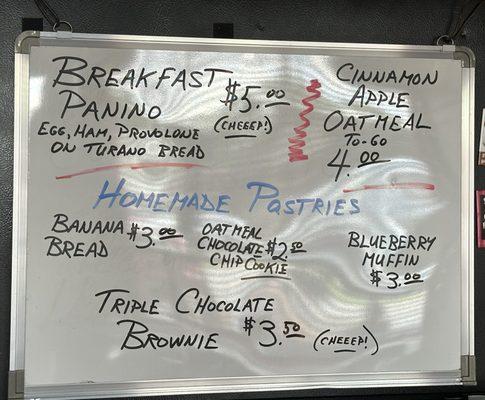 BREAKFAST
PANINO
EGG, HAM, PROVOLONE
ON TURANO BREAD
$5.00
(CHEEEP!)
CINNAMON
APPLE
OATMEAL
TO-GO
4.00
HOMEMADE PASTRIES
BANANA
BREAD
$3.00
OATMEAL
CHOCOLATE $2.50
CHIP COOKIE
BLUEBERRY
MUFFIN
$3.00
TRIPLE CHOCOLATE
BROWNIE $3.50 (CHEEEP!)